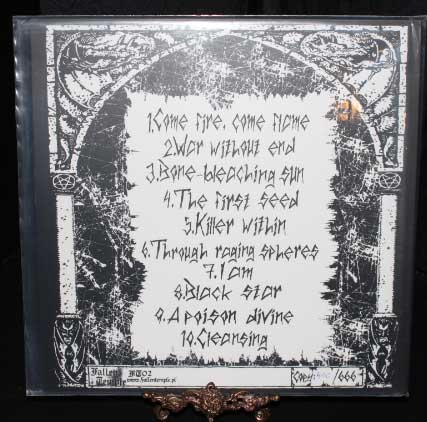 1.Come fire, come flame
2.War without end
3.Bone-bleaching sun
4.The first seed
5.Killer within
6.Through raging spheres
7.I am
8.Black star
9.A poison divine
10.Cleansing
Fallen Temple
FT02
www.fallentemple.pl
Copy: /666